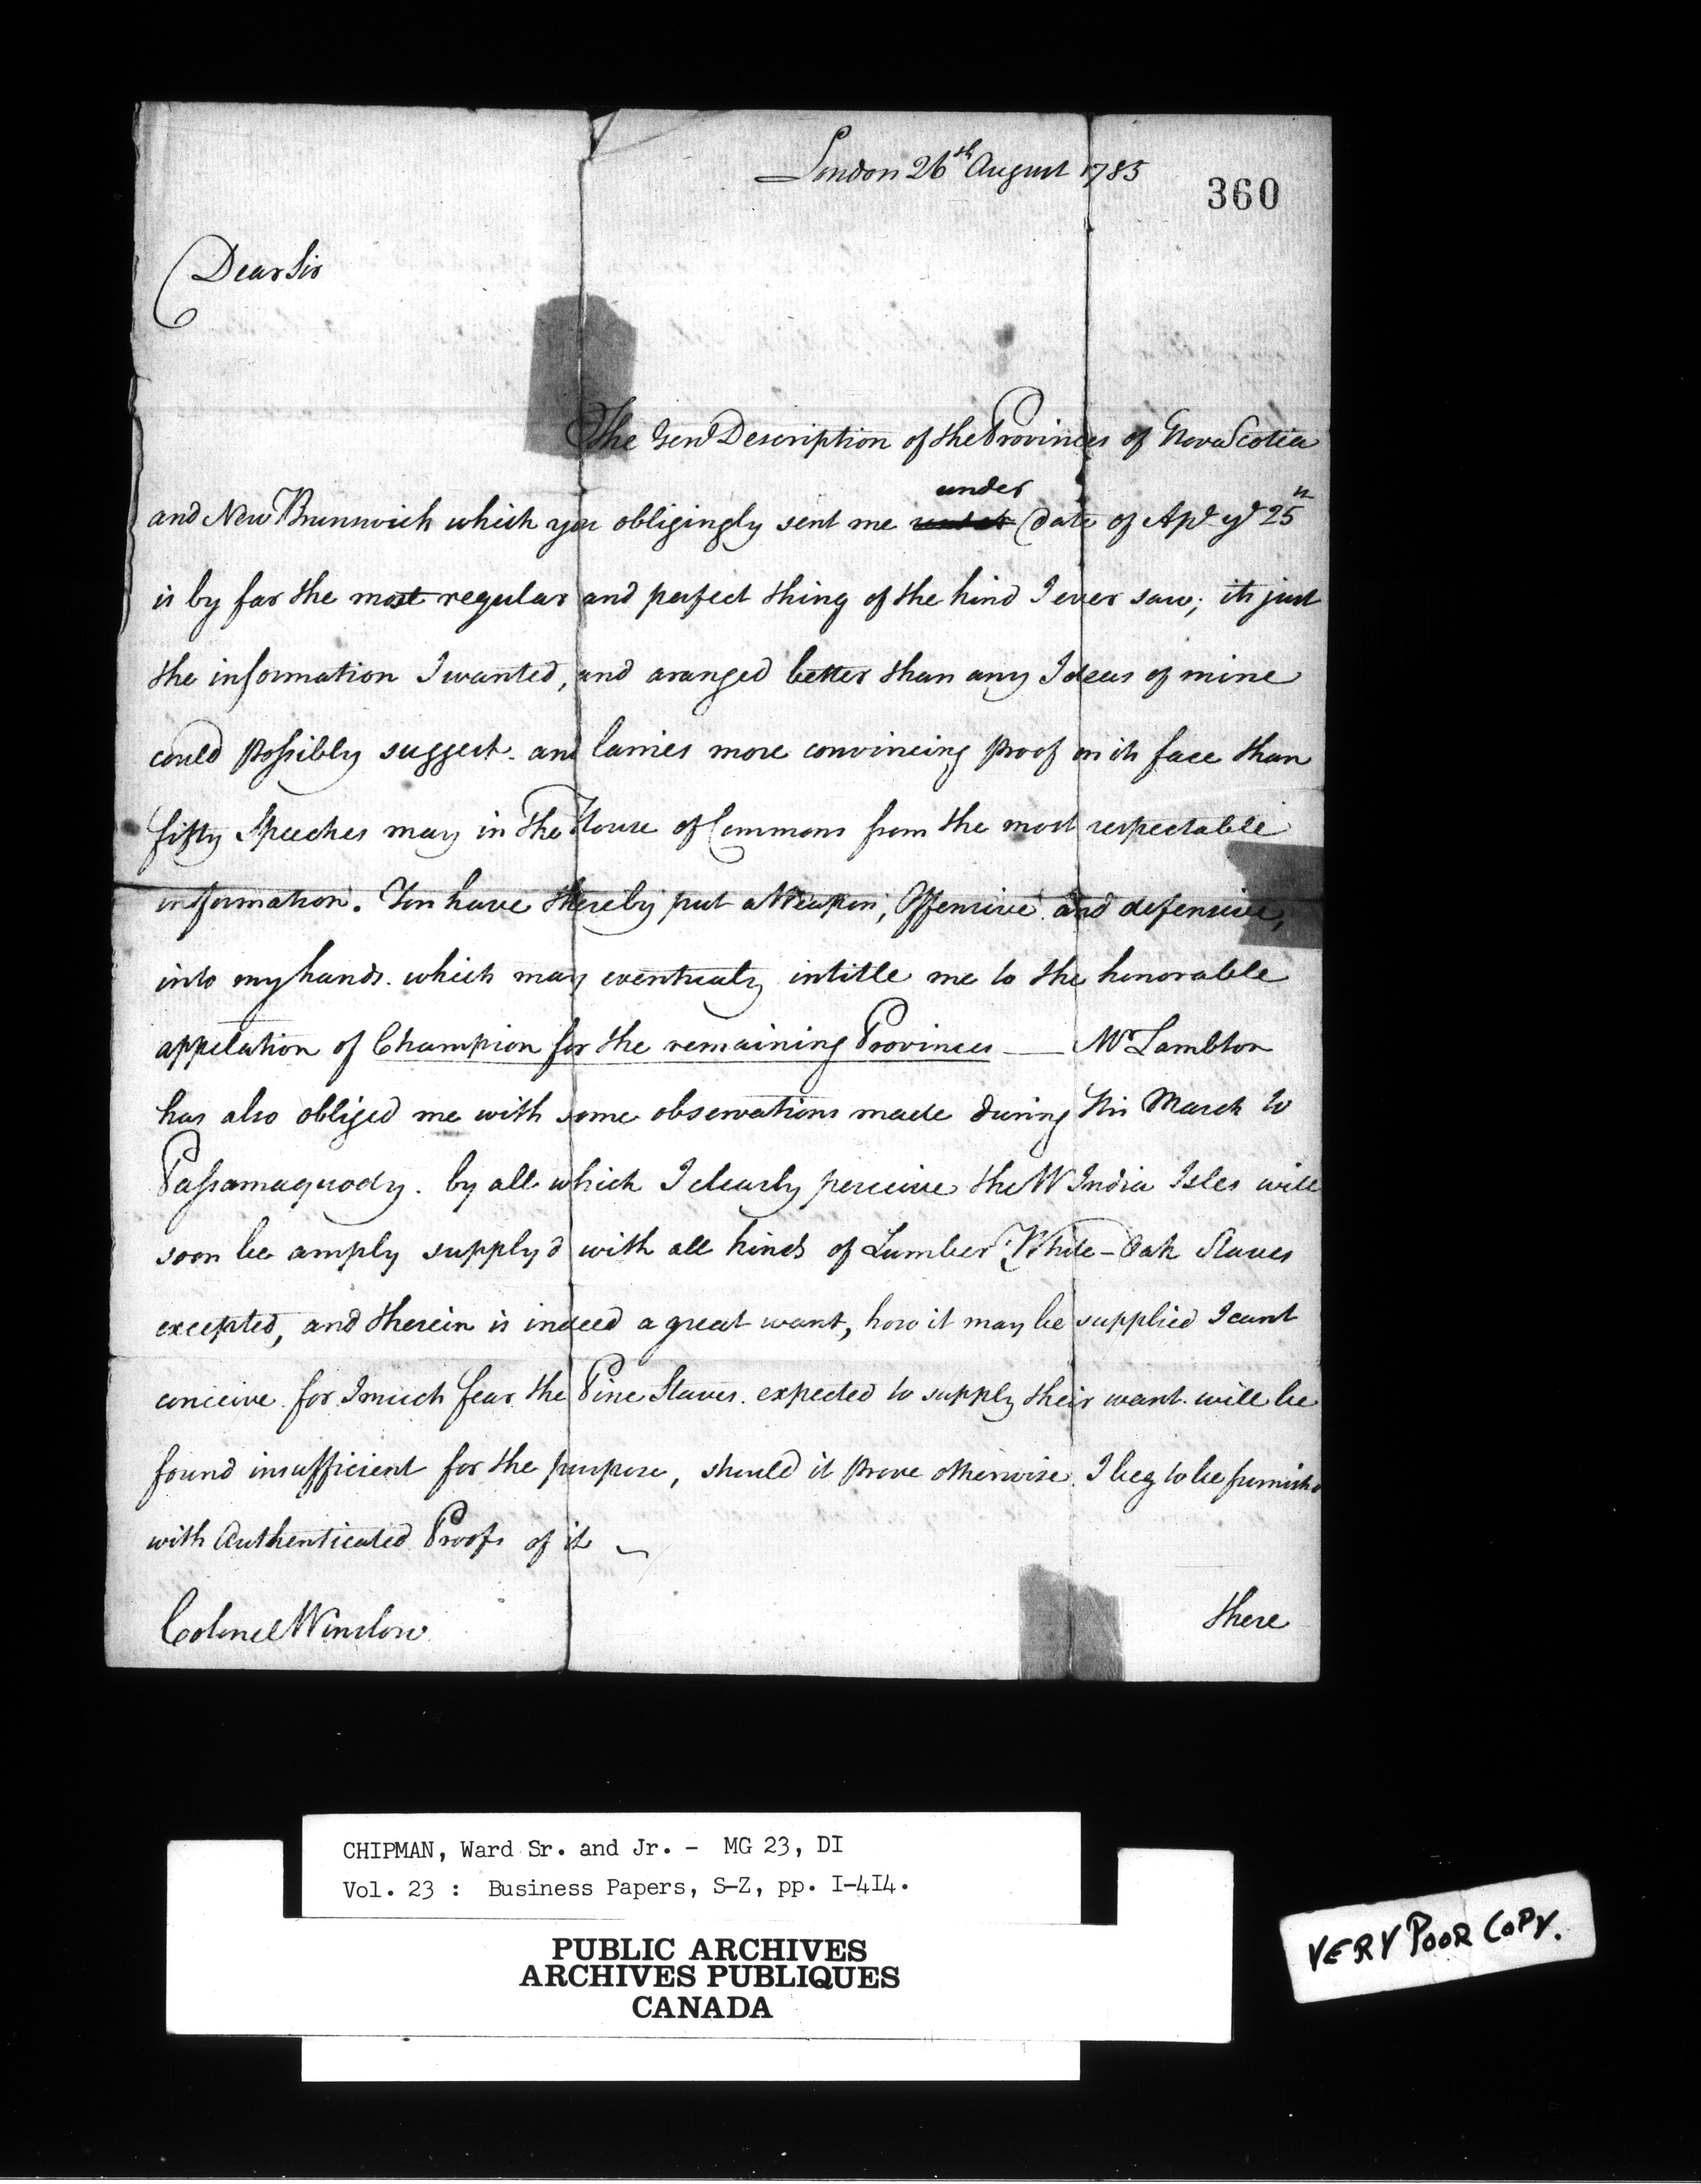 London 26th August 1785
360
Dear Sir
The Genl Description of the Provinces of Nova Scotia
under
and New Brunswick which you obligingly sent me date of Apl ye 25th
is by far the most regular and perfect thing of the kind I ever saw; its just
the information I wanted, and aranged better than any Ideas of mine
could possibly suggest. and Carries more convincing proof on its face than
fifty Speeches may in The House of Commons from the most respectable
information. You have thereby put a Weapon, Offensive and defensive,
into my hands. which may eventualy intitle me to the honorable
appelation of Champion for the remaining Provinces — Mr Lambton
has also obliged me with some observations made during his March to
Passamaquody. by all which I clearly perceive the W India Isles will
soon be amply supply'd with all kinds of Lumber, White-Oak Staves
excepted, and therein is indeed a great want, how it may be supplied I cant
conceive. for I much fear the Pine Staves. expected to supply their want. will be
found insufficient for the purpose, should it prove otherwise. I beg to be furnishd
with Authenticated Proofs of it
Colonel Winslow
there
CHIPMAN, Ward Sr. and Jr. - MG 23, DI
Vol. 23 : Business Papers, S-Z, pp. I-4I4.
PUBLIC ARCHIVES
ARCHIVES PUBLIQUES
CANADA
VERY POOR COPY.